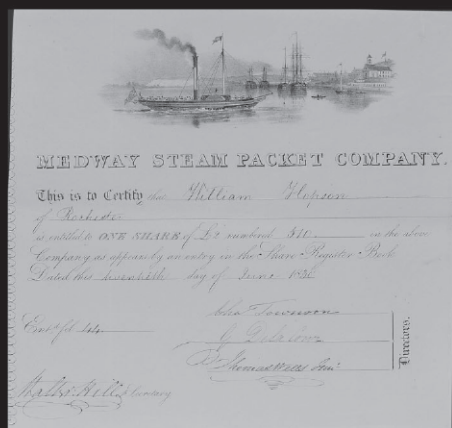 MEDWAY STEAM PACKET COMPANY.
This is to Certify that William Hopson
of Rochester
is entitled to ONE SHARE of £5 numbered in the above
Company as appears by an entry in the Share Register Book
Dated this day of June
John Townson
Thomas
Directors.
Ent.d fol. 
Walter Hills Secretary